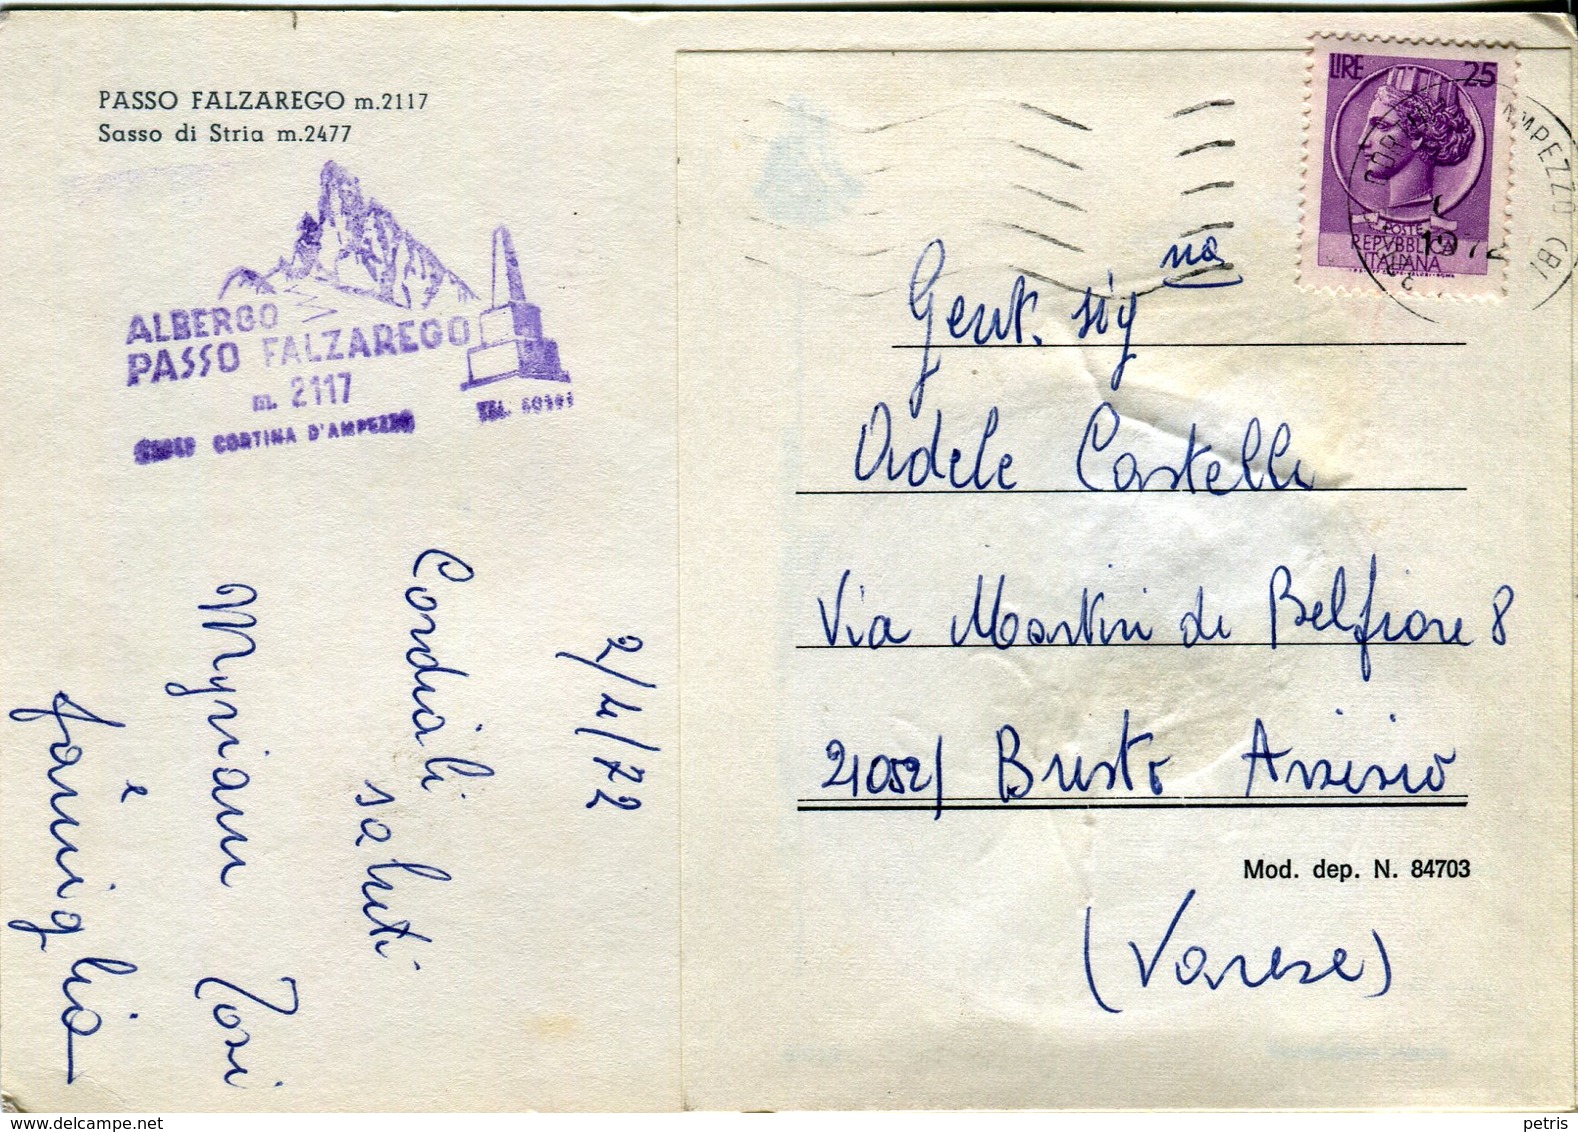 PASSO FALZAREGO m.2117
Sasso di Stria m.2477
ALBERGO
PASSO FALZAREGO
m. 2117
CORTINA D'AMPEZZO
TEL.
2/4/72
Cordiali
saluti
Myriam Tosi
e
famiglia
LIRE 25
POSTE
REPVBBLICA
ITALIANA
AMPEZZO (BL)
1972
Gent. sig na
Adele Castelli
Via Martiri di Belfiore 8
21052/ Busto Arsizio
Mod. dep. N. 84703
(Varese)
petris
delcampe.net